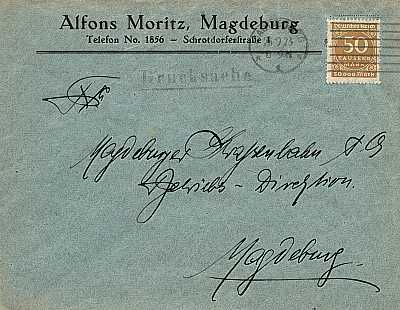 Alfons Moritz, Magdeburg
Telefon No. 1856 — Schrotdorferstraße 1
Deutsches Reich
50
TAUSEND
MARK
50000 MARK
Drucksache
An
Magdeburger Strassenbahn A G
Betriebs - Direktion.
Magdeburg.